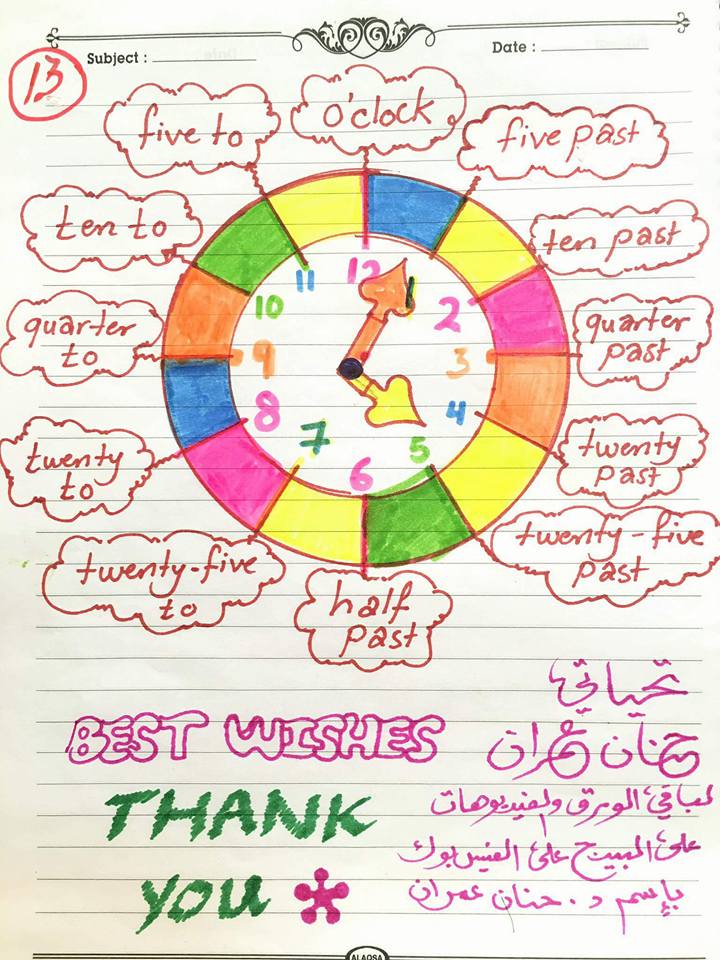 13
Subject :
Date :
o'clock
five past
ten past
quarter
past
twenty
past
twenty-five
past
half
past
twenty-five
to
twenty
to
quarter
to
ten to
five to
12
1
2
3
4
5
6
7
8
9
10
11
BEST WISHES
THANK
YOU
تحياتي
حنان عمران
لباقي الورق والفيديوهات
على البيج على الفيس بوك
بإسم د. حنان عمران
ALAQSA